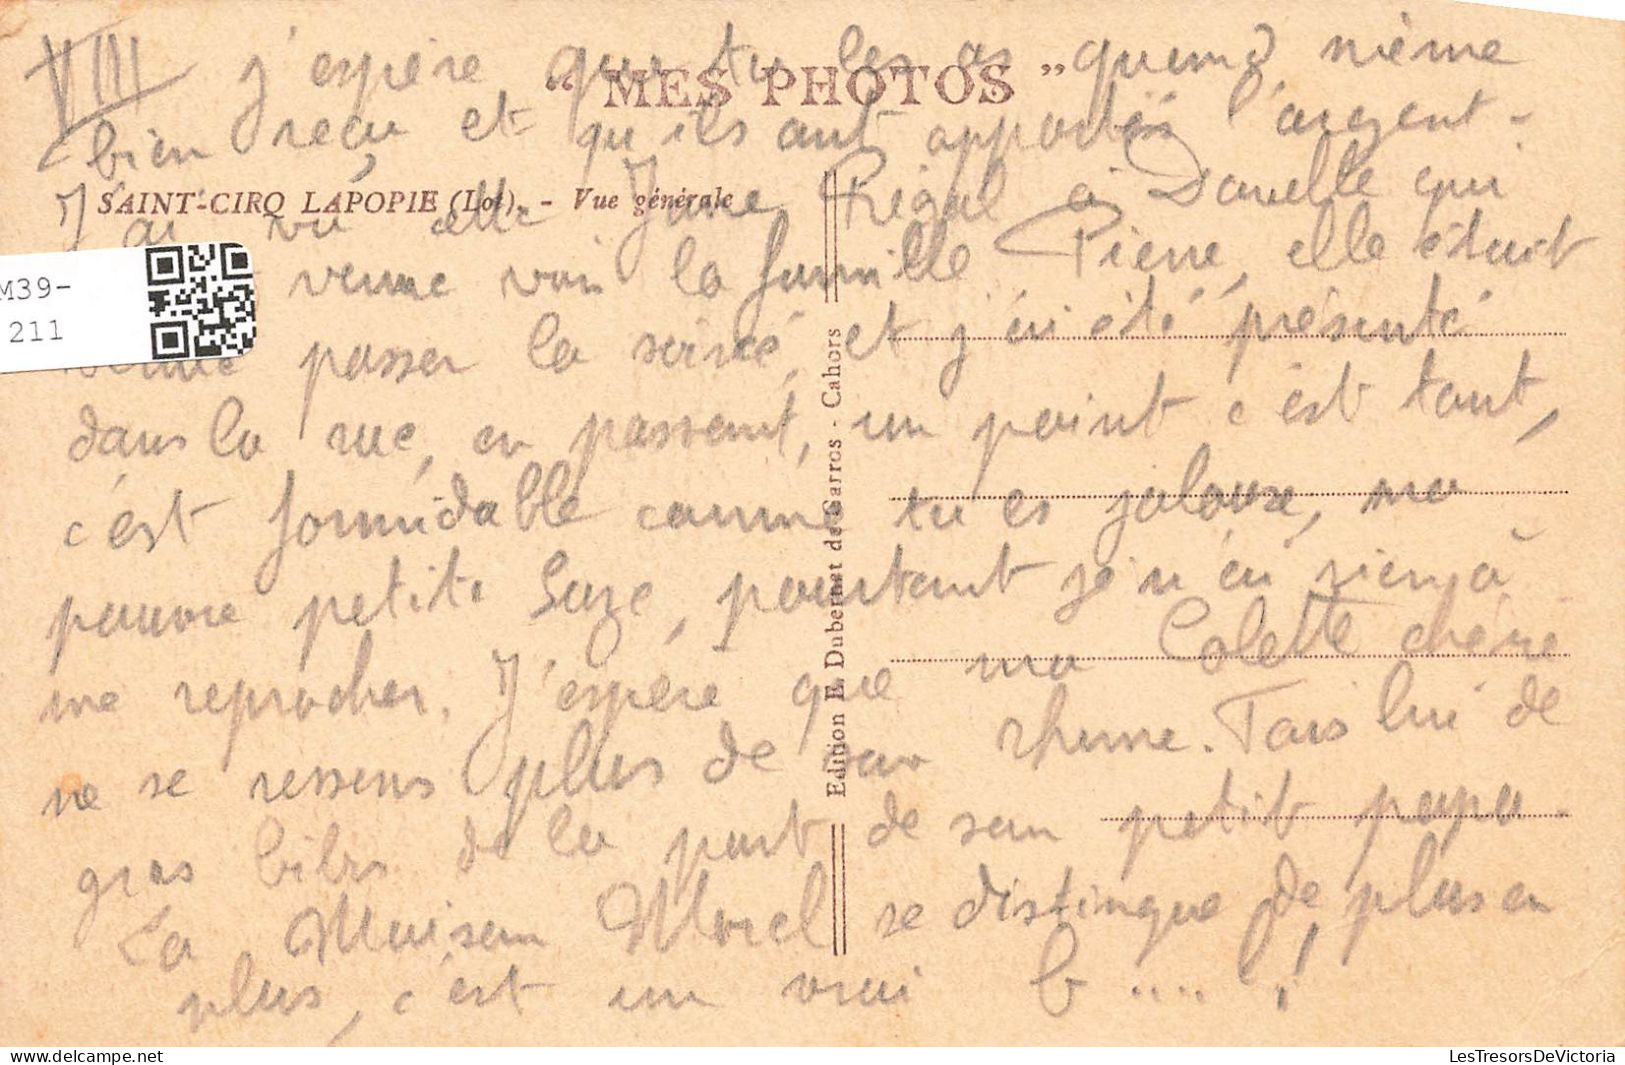 VIII j'espère que tu les as quand même
" MES PHOTOS "
bien reçu et qu'ils ont apporté l'argent.
SAINT-CIRQ LAPOPIE (Lot). - Vue générale
J'ai vu cette Jane Rigal à Danelle qui
venue voir la famille Pierre, elle était
venue passer la soirée, et j'ai été présenté
dans la rue, en passant, un point c'est tout,
c'est formidable comme tu es jalouse, ma
pauvre petite Suze, pourtant je n'ai rien à
me reprocher. J'espère que ma Colette chérie
ne se ressens plus de son rhume. Fais lui de
gros bibis de la part de son petit papa.
La Maison Morel se distingue de plus en
plus, c'est un vrai b.... !
Edition E. Dubernet de Garros - Cahors
M39-
211
LesTresorsDeVictoria